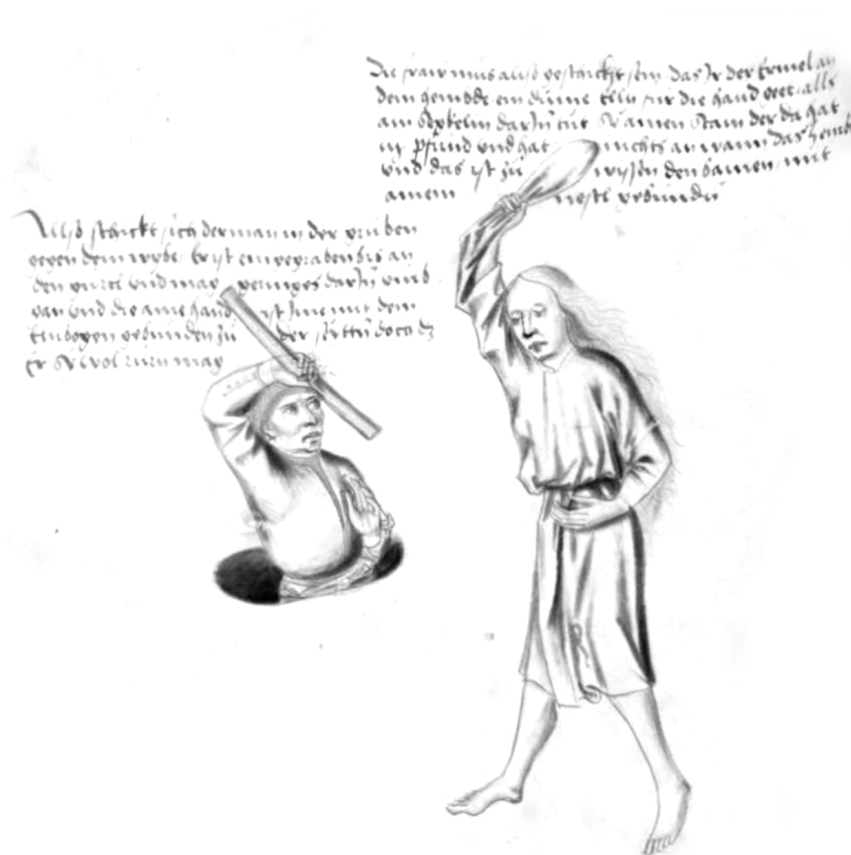 Die fraw mus also geschickt sein das Ir der Ermel an
dem hemdde ein dume elln fur die hand geet alls
ain Secklein darIn tut Sy ainen Stain der da hat
iij pfund vnd hat nichts an wann das hemd
vnd das ist zu wissen den bainen mit
ainem nestl gebunden
Allso schickt sich der man in der gruben
gegen dem wybe Er ist eingegraben bis an
den gurtl vnd mag geringes darIn vmb
gan vnd die aine hand ist Ime mit dem
Elnbogen gebunden zu der seytten doch dz
Er Sy wol rurn mag